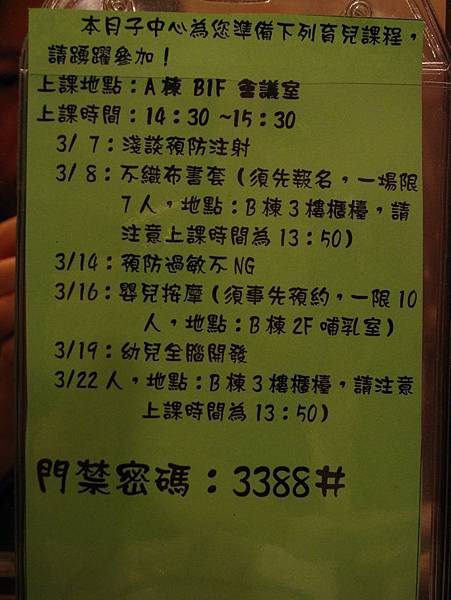 本月子中心為您準備下列育兒課程，
請踴躍參加！
上課地點：A棟 B1F 會議室
上課時間：14：30 ~15：30
3/ 7：淺談預防注射
3/ 8：不織布書套（須先報名，一場限
7人，地點：B棟3樓櫃檯，請
注意上課時間為13：50）
3/14：預防過敏不NG
3/16：嬰兒按摩（須事先預約，一限10
人，地點：B棟2F哺乳室）
3/19：幼兒全腦開發
3/22人，地點：B棟3樓櫃檯，請注意
上課時間為13：50）
門禁密碼：3388#